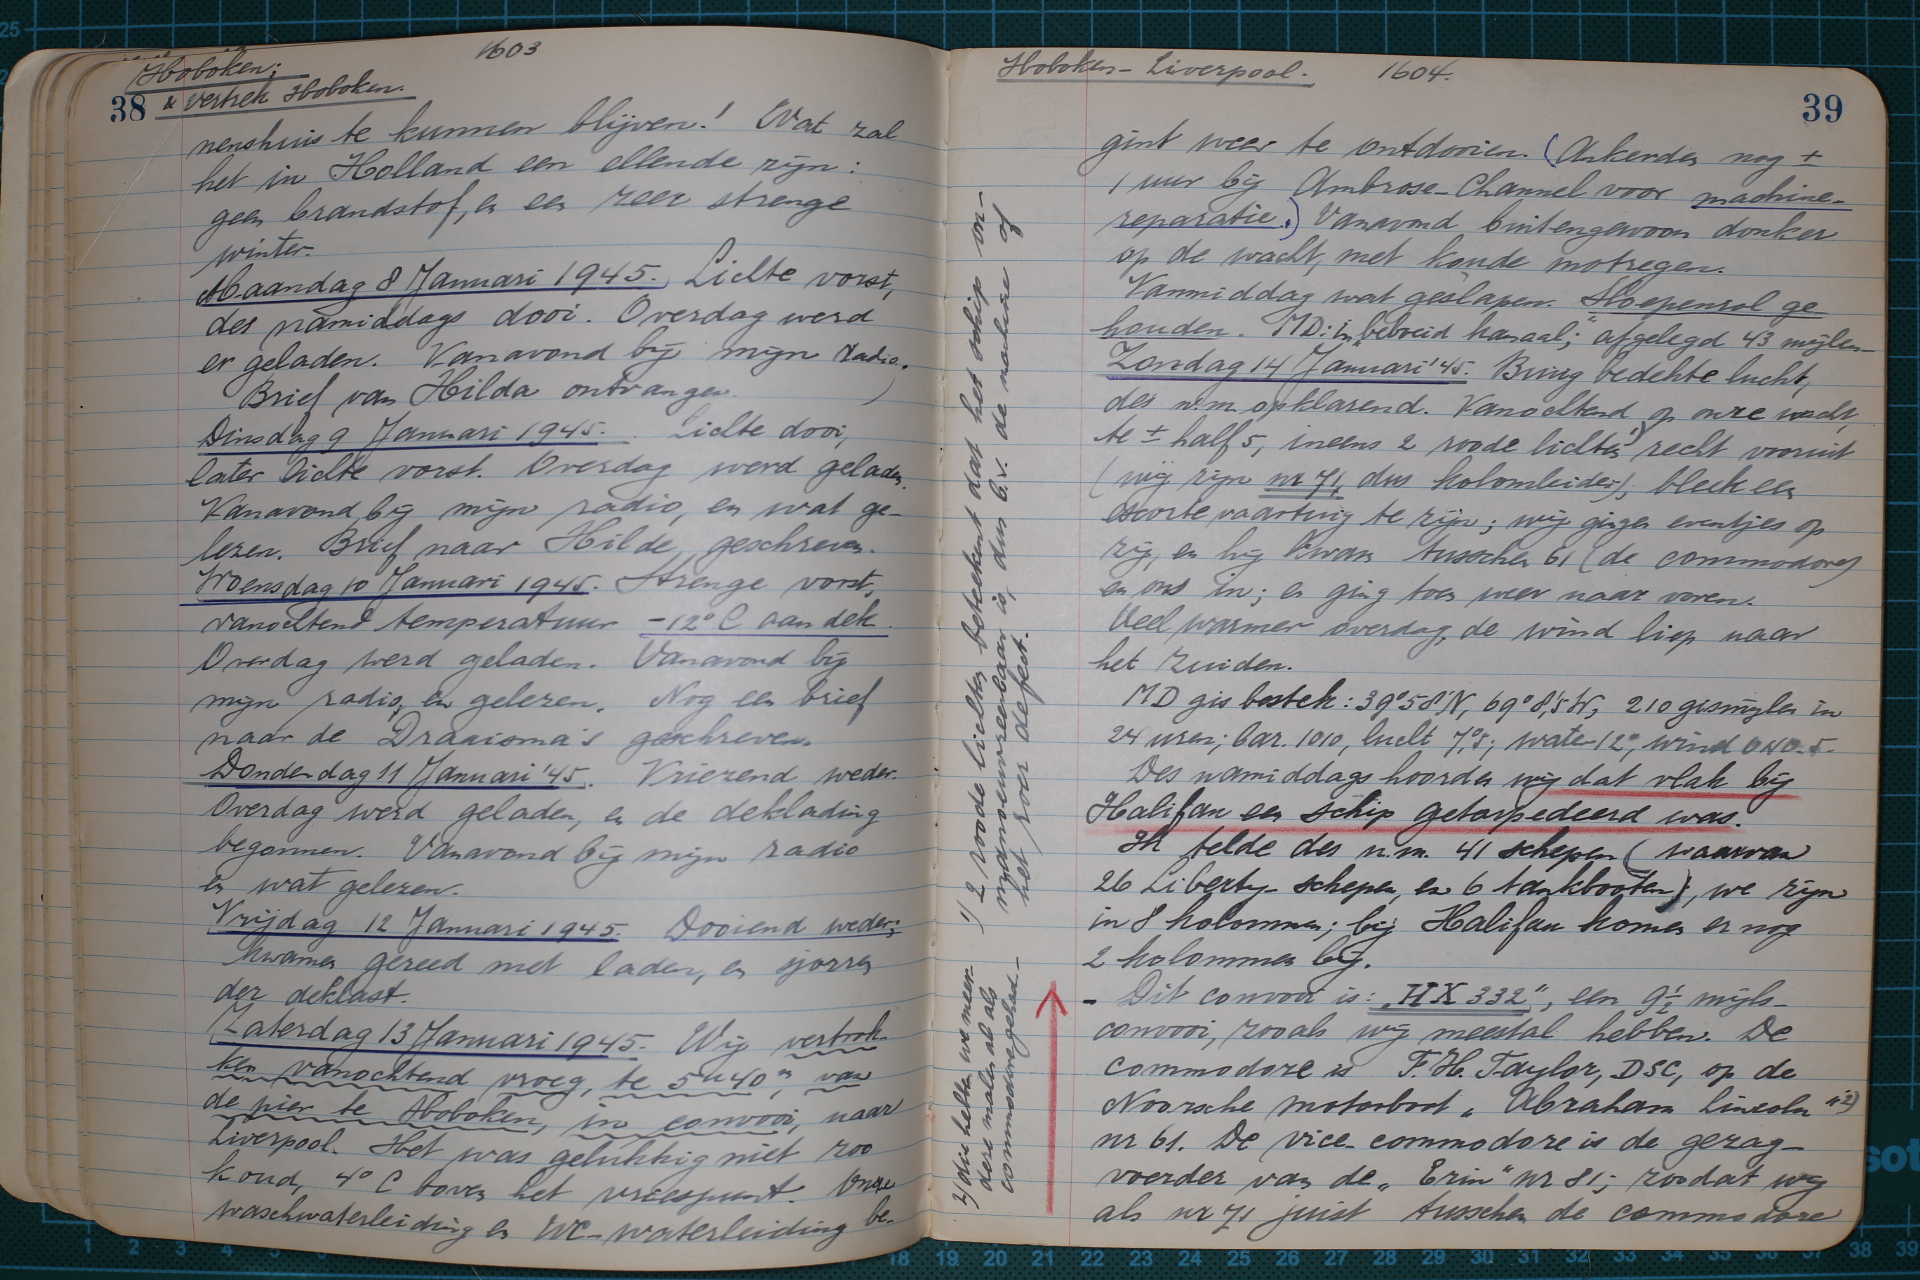 1603
Hoboken;
38 & Vertrek Hoboken.
nenshuis te kunnen blijven! Wat zal
het in Holland een ellende zijn:
geen brandstof, en een zeer strenge
winter.
Maandag 8 Januari 1945. Lichte vorst,
des namiddags dooi. Overdag werd
er geladen. Vanavond bij mijn radio.
Brief van Hilda ontvangen.
Dinsdag 9 Januari 1945. Lichte dooi,
later lichte vorst. Overdag werd geladen.
Vanavond bij mijn radio, en wat ge-
lezen. Brief naar Hilde, geschreven.
Woensdag 10 Januari 1945. Strenge vorst,
vanochtend temperatuur -12° C aan dek.
Overdag werd geladen. Vanavond bij
mijn radio, en gelezen. Nog een brief
naar de Draaisma's geschreven.
Donderdag 11 Januari '45. Vriezend weder.
Overdag werd geladen, en de deklading
begonnen. Vanavond bij mijn radio
en wat gelezen.
Vrijdag 12 Januari 1945. Dooiend weder;
kwamen gereed met laden, en sjorren
der deklast.
Zaterdag 13 Januari 1945. Wij vertrok-
ken vanochtend vroeg, te 5u 40m, van
de pier te Hoboken, in convooi, naar
Liverpool. Het was gelukkig niet zoo
koud, 4° C boven het vriespunt. Onze
waschwaterleiding en WC-waterleiding be-
Hoboken - Liverpool. 1604.
39
gint weer te ontdooien. (Ankerden nog ±
1 uur bij Ambrose-Channel voor machine-
reparatie.) Vanavond buitengewoon donker
op de wacht, met koude motregen.
Vanmiddag wat geslapen. Sloepenrol ge
houden. MD: in "beboeid kanaal;" afgelegd 43 mijlen
Zondag 14 Januari '45. Buiig bedekte lucht,
des n.m. opklarend. Vanochtend, op onze wacht,
te ± half 5, ineens 2 roode lichten 1) recht vooruit
(wij zijn nr 71, dus kolomleider), bleek een
escorte vaartuig te zijn; wij gingen eventjes op
zij, en hij kwam tusschen 61 (de commodore)
en ons in; en ging toen weer naar voren.
Veel warmer overdag, de wind liep naar
het zuiden.
MD gis bestek: 39°58'N, 69°8,'5W, 210 gismijlen in
24 uren; bar. 1010, lucht 7,°5; water 12°, wind ONO-5.
Des namiddags hoorden wij dat vlak bij
Halifax een schip getorpedeerd was.
Ik telde des n.m. 41 schepen (waarvan
26 Liberty-schepen, en 6 tankbooten), we zijn
in 8 kolommen; bij Halifax komen er nog
2 kolommen bij.
- Dit convooi is: "HX 332", een 9½ mijls-
convooi, zooals wij meestal hebben. De
commodore is F.H. Taylor, DSC, op de
Noorsche motorboot "Abraham Lincoln" 2)
nr 61. De vice-commodore is de gezag-
voerder van de "Erin" nr 81; zoodat wij
als nr 71 juist tusschen de commodore
1) 2 roode lichten beteekent dat het schip on-
manoeuvreerbaar is, dus b.v. de machine of
het roer defect.
2) dis hebben we meer-
dere malen al als